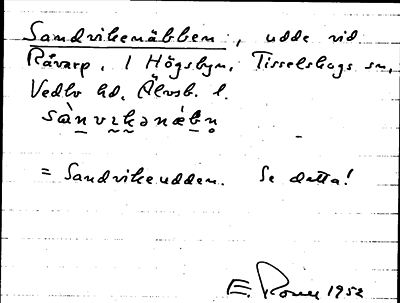 Sandvikenäbben, udde vid
Råvarp, 1 Högsbyn, Tisselskogs sn,
Vedbo hd, Älvsb. l.
= Sandvikeudden. Se detta!
E. 1952